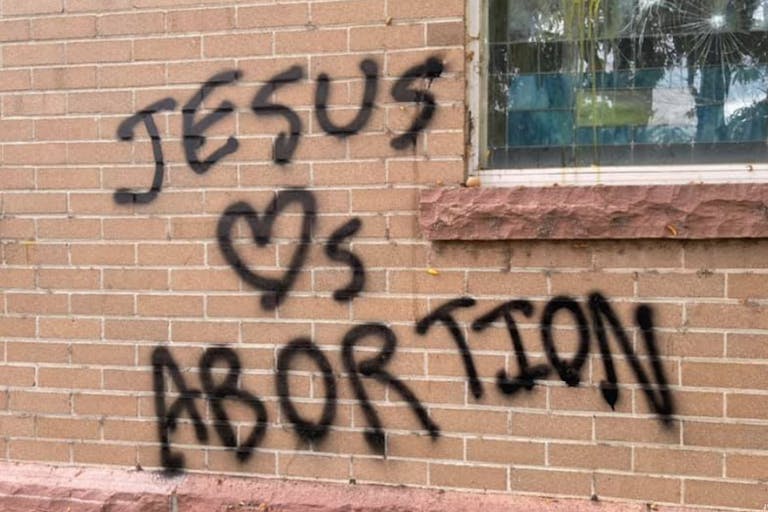 JESUS
♡s
ABORTION